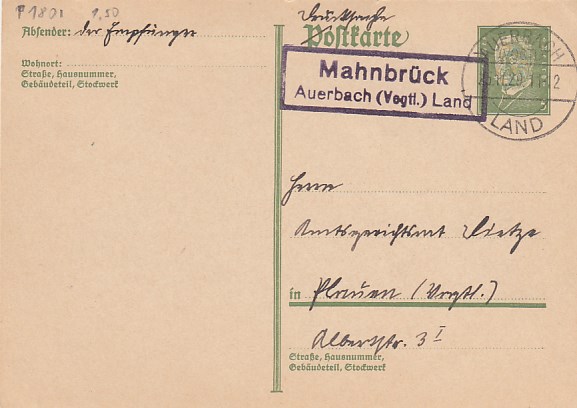 P 1801 1,50
Drucksache
Postkarte
Absender: der Empfänger
Wohnort:
Straße, Hausnummer,
Gebäudeteil, Stockwerk
Mahnbrück
Auerbach (Vogtl.) Land
AUERBACH
LAND
Herrn
Amtsgerichtsrat Dietze
in Plauen (Vogtl.)
Albertstr. 3 I
Straße, Hausnummer,
Gebäudeteil, Stockwerk